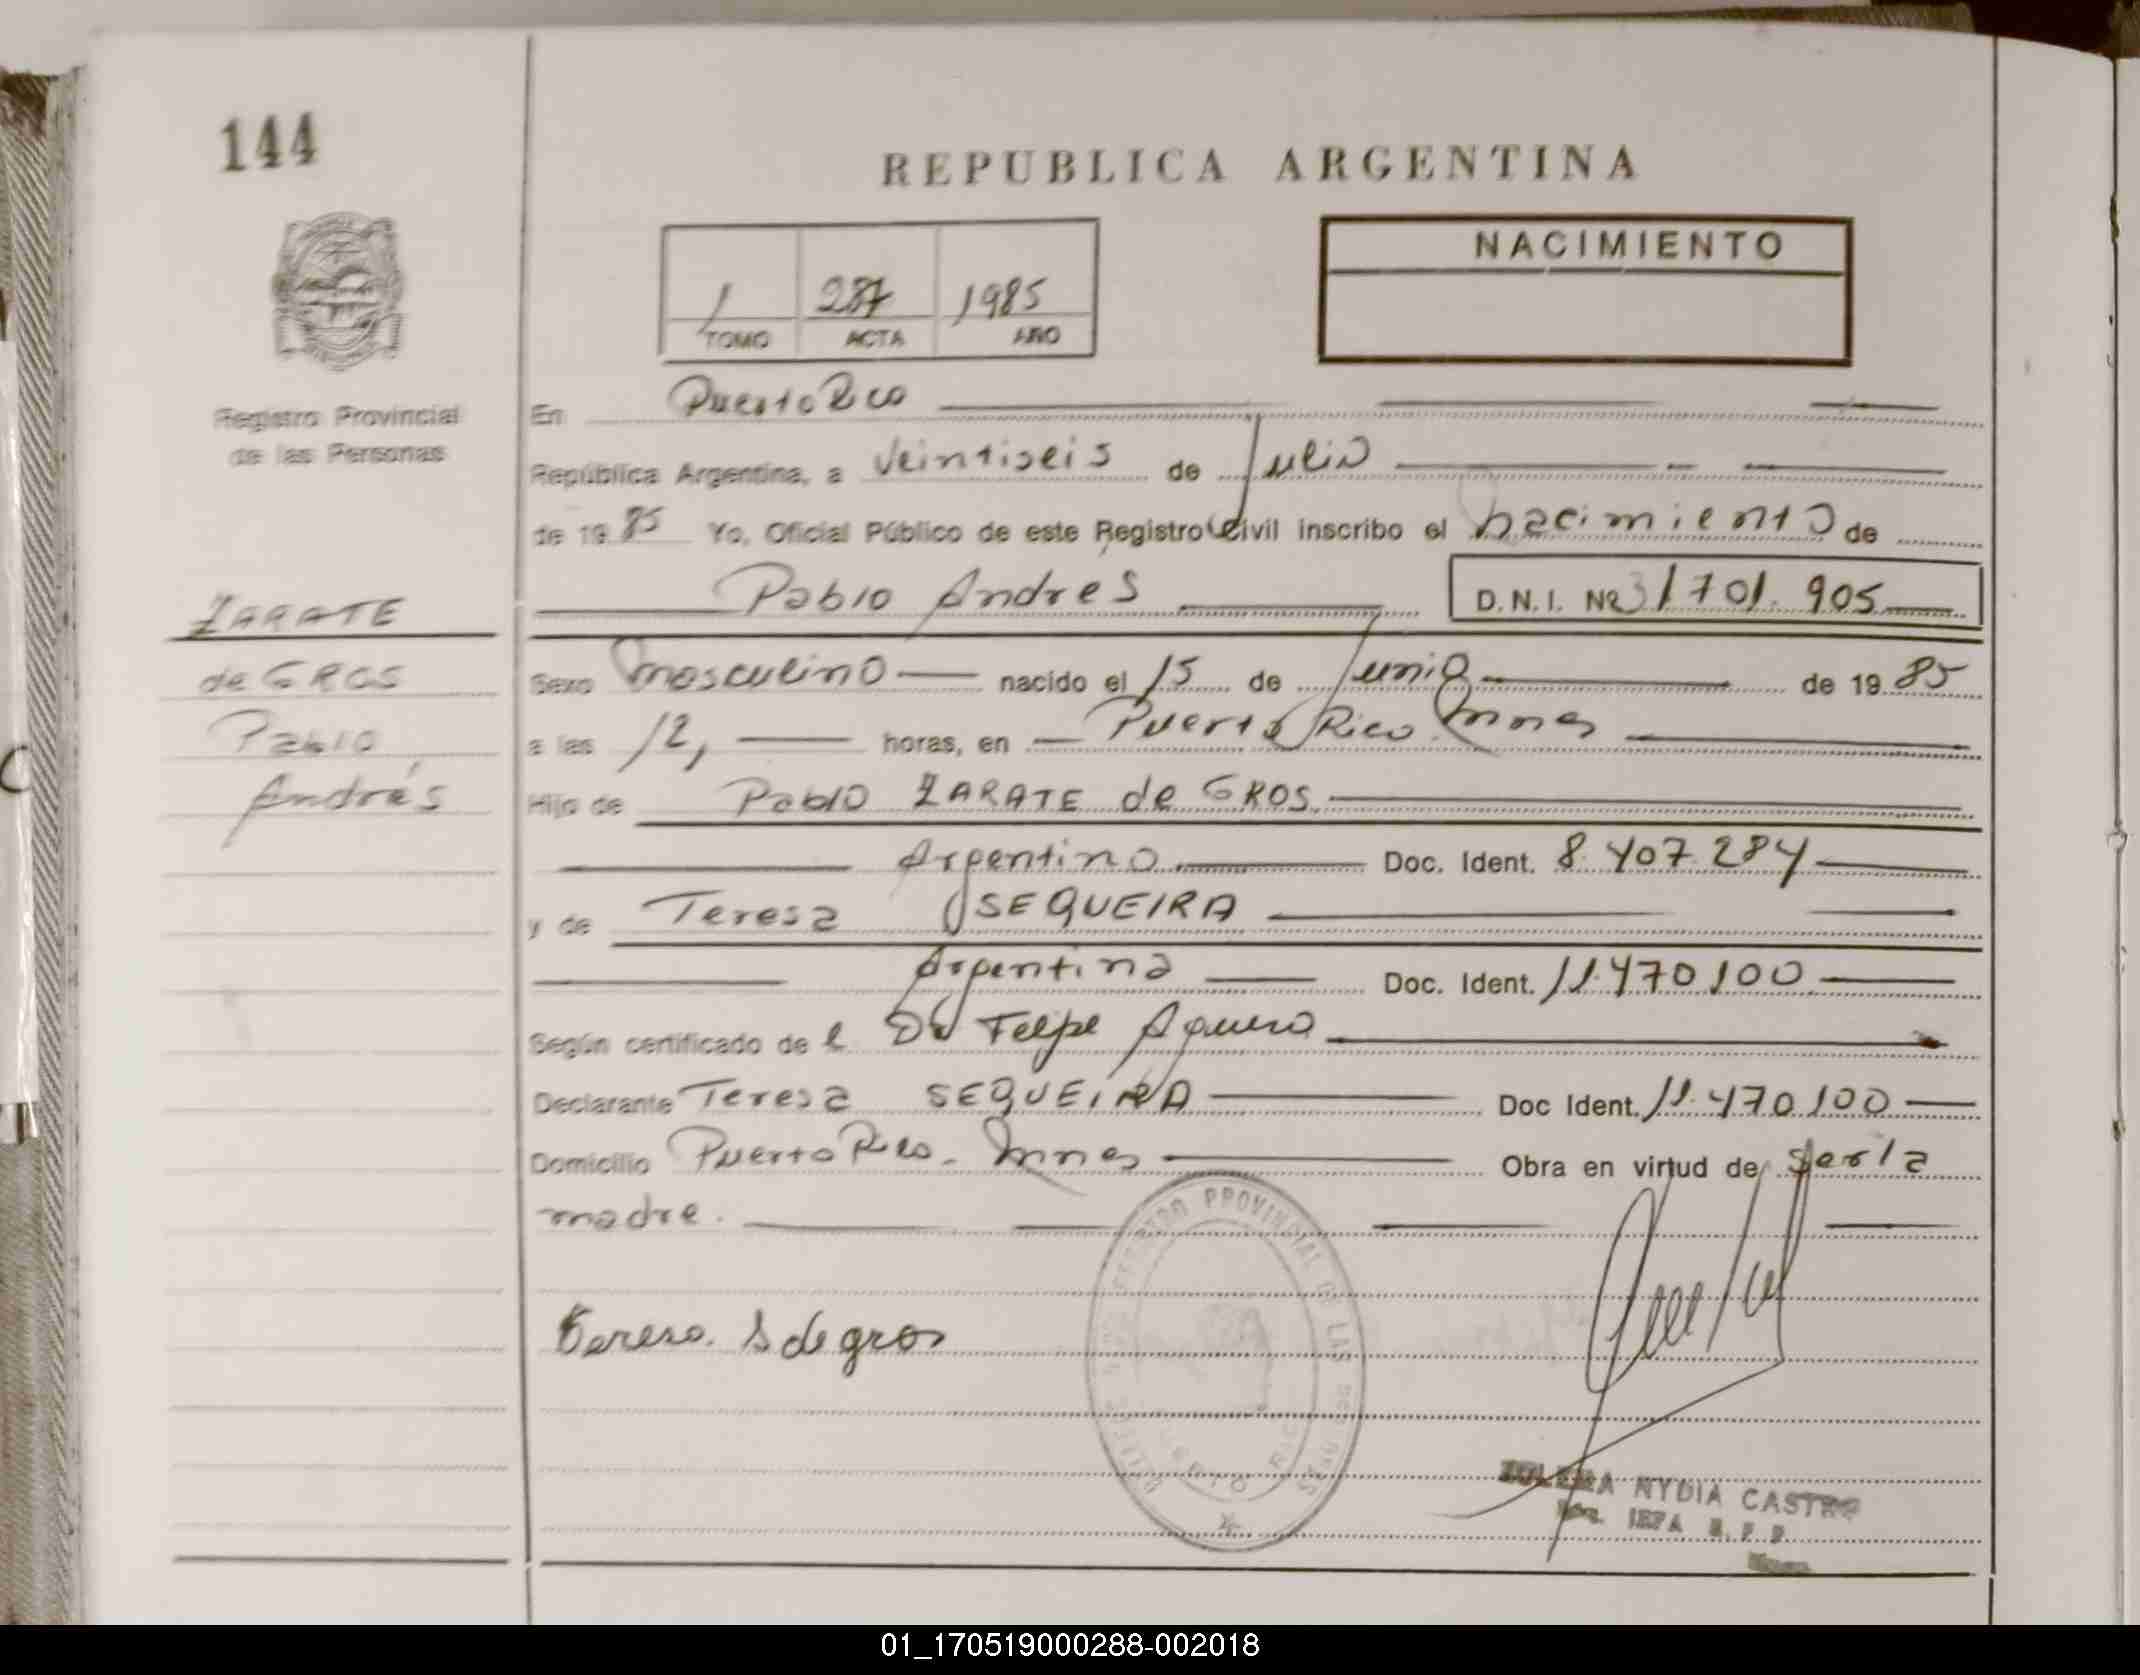 144
REPUBLICA ARGENTINA
NACIMIENTO
1 287 1985
TOMO ACTA AÑO
Registro Provincial
de las Personas
En Puerto Rico
República Argentina, a veintiseis de Julio
de 1985 Yo, Oficial Público de este Registro Civil inscribo el nacimiento de
Pablo Andres D.N.I. Nº 31701.905
ZARATE
de GROS
Pablo
Andrés
Sexo masculino nacido el 15 de Junio de 1985
a las 12, horas, en Puerto Rico. Mnes
Hijo de Pablo ZARATE de GROS.
Argentino Doc. Ident. 8.407.284
y de Teresa SEQUEIRA
Argentina Doc. Ident. 11.470.100
Según certificado de l Dr Felipe Aguero
Declarante Teresa SEQUEIRA Doc Ident. 11.470.100
Domicilio Puerto Rico. Mnes Obra en virtud de ser la
madre.
Teresa. S de gros
REGISTRO PROVINCIAL DE LAS PERSONAS
PUERTO RICO
ZULEMA NYDIA CASTRO
01_170519000288-002018